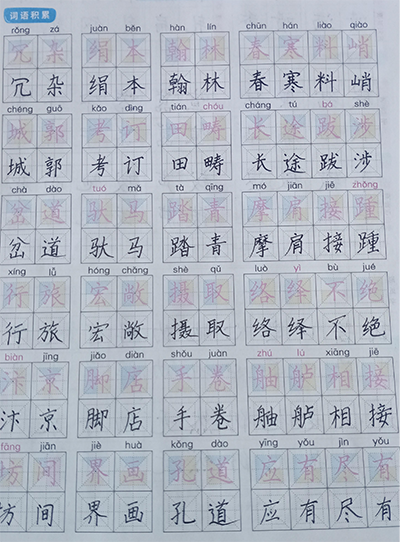 词语积累
rǒng zá juàn běn hàn lín chūn hán liào qiào
冗杂 绢本 翰林 春寒料峭
冗杂 绢本 翰林 春寒料峭
chéng guō kǎo dìng tián chóu cháng tú bá shè
城郭 考订 田畴 长途跋涉
城郭 考订 田畴 长途跋涉
chà dào tuó mǎ tà qīng mó jiān jiē zhǒng
岔道 驮马 踏青 摩肩接踵
岔道 驮马 踏青 摩肩接踵
xíng lǚ hóng chǎng shè qǔ luò yì bù jué
行旅 宏敞 摄取 络绎不绝
行旅 宏敞 摄取 络绎不绝
biàn jīng jiǎo diàn shǒu juàn zhú lú xiāng jiē
汴京 脚店 手卷 舳舻相接
汴京 脚店 手卷 舳舻相接
fāng jiān jiè huà kǒng dào yīng yǒu jìn yǒu
坊间 界画 孔道 应有尽有
坊间 界画 孔道 应有尽有